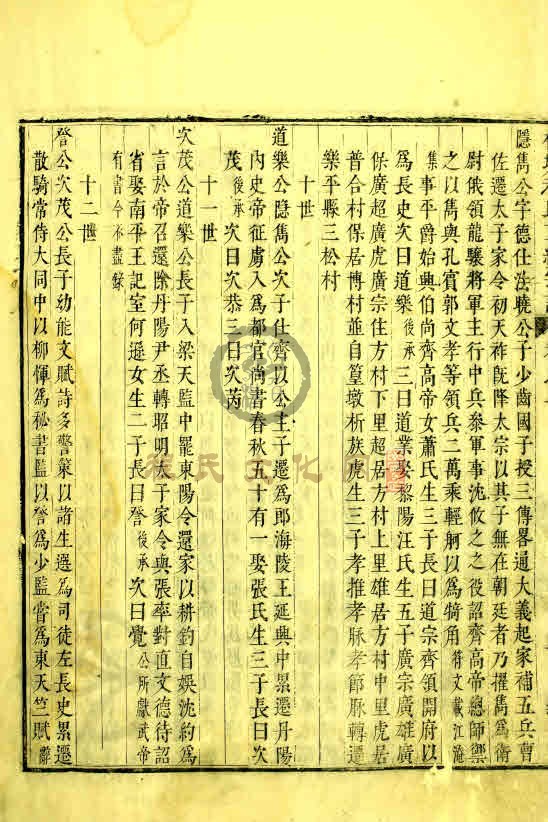 隱雋公字德仕法曉公子少齒國子授三傳畧通大義起家補五兵曹
佐遷太子家令初天祚旣降太宗以其子無在朝廷者乃擢雋爲衛
尉俄領龍驤將軍主行中兵參軍事沈攸之之役詔齊高帝總師禦
之以雋與孔賓郭文孝等領兵二萬乘輕舸以爲犄角符文載江淹
集事平爵始興伯尚齊高帝女蕭氏生三子長曰道宗齊領開府以
爲長史次曰道樂後承三曰道業娶黎陽汪氏生五子廣宗廣雄廣
保廣超廣虎廣宗住方村下里超居方村上里雄居方村中里虎居
普合村保居博村並自篁墩析族虎生三子孝推孝脉孝節脉轉遷
樂平縣三松村
十世
道樂公隱雋公次子仕齊以公主子遷爲郎海陵王延興中累遷丹陽
内史帝征虜入爲都官尚書春秋五十有一娶張氏生三子長曰次
茂後承次曰次恭三曰次芮
十一世
次茂公道樂公長子入梁天監中罷東陽令還家以耕釣自娱沈約爲
言於帝召還除丹陽尹丞轉昭明太子家令與張率對直文德待詔
省娶南平王記室何遜女生二子長曰詧後承次曰覺公所獻武帝
有書今不盡錄
十二世
詧公次茂公長子幼能文賦詩多警策以諸生選爲司徒左長史累遷
散騎常侍大同中以柳惲爲秘書監以詧爲少監嘗爲東天竺賦辭
程氏文化